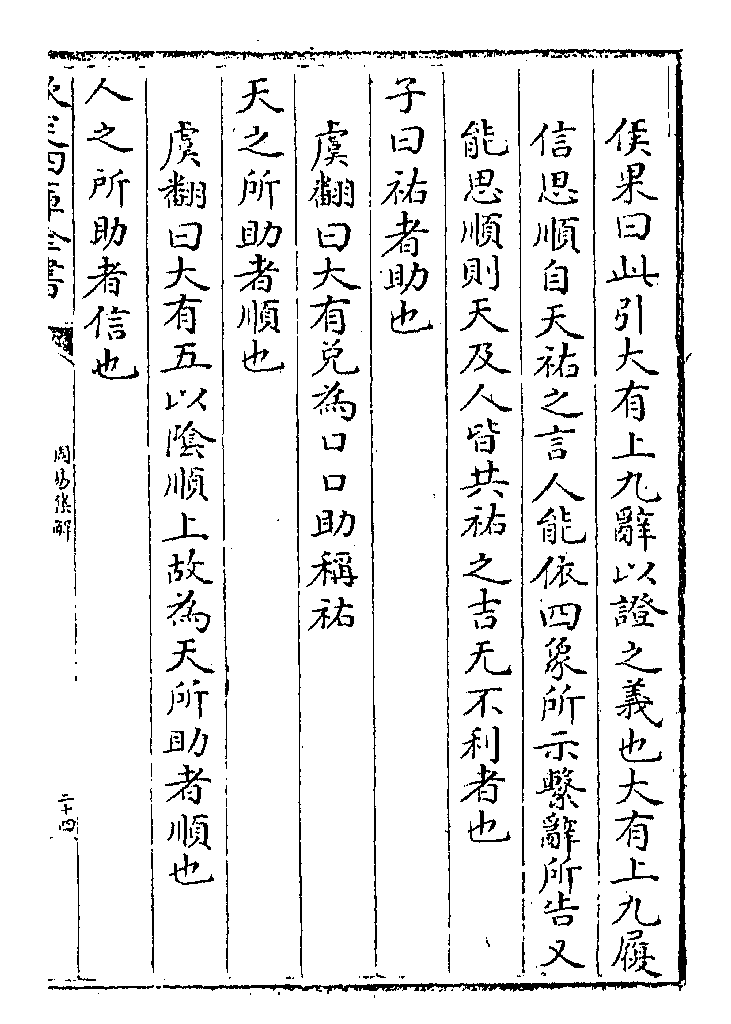 侯果曰此引大有上九辭以證之義也大有上九履
信思順自天祐之言人能依四象所示繫辭所告又
能思順則天及人皆共祐之吉无不利者也
子曰祐者助也
虞翻曰大有兌為口口助稱祐
天之所助者順也
虞翻曰大有五以陰順上故為天所助者順也
人之所助者信也
欽定四庫全書
周易集解
二十四